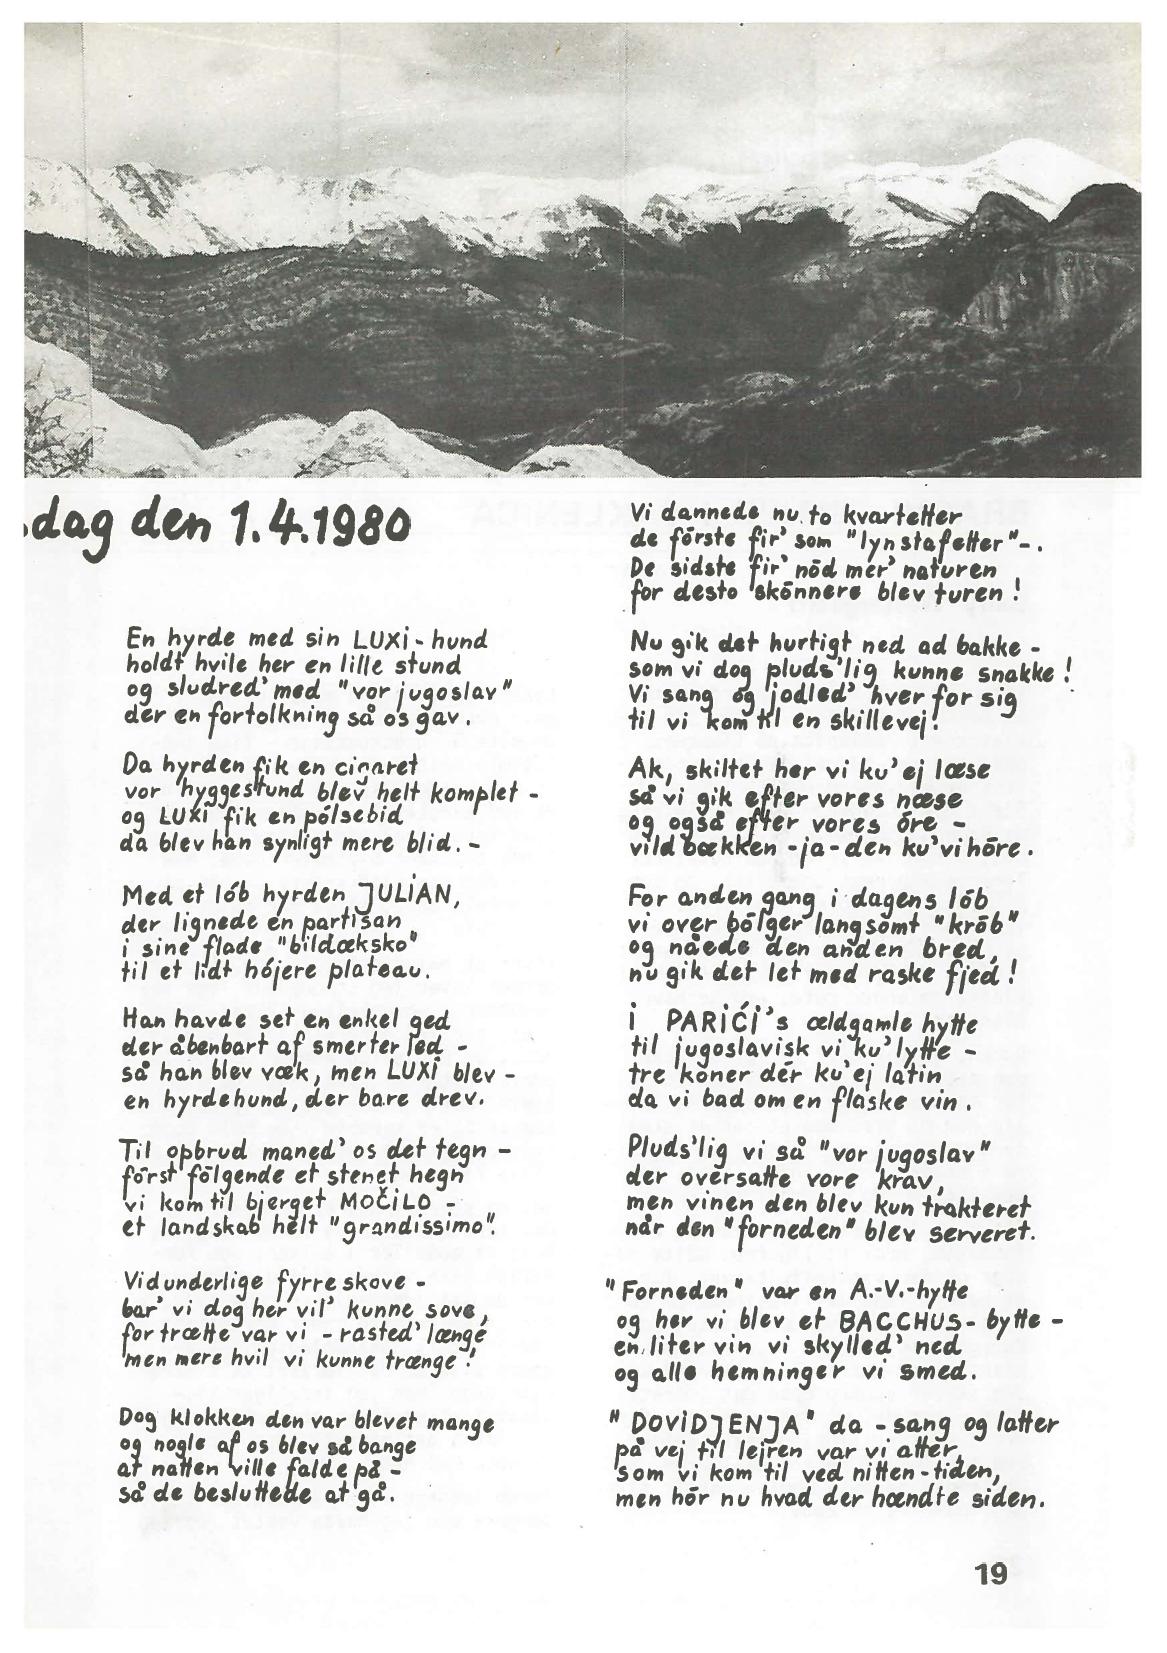 .dag den 1.4.1980
En hyrde med sin LUXI-hund
holdt hvile her en lille stund
og sludred' med "vor jugoslav"
der en fortolkning så os gav.
Da hyrden fik en cigaret
vor hyggestund blev helt komplet -
og LUXI fik en pólsebid
da blev han synligt mere blid. -
Med et lób hyrden JULIAN,
der lignede en partisan
i sine flade "bildæksko"
til et lidt hójere plateau.
Han havde set en enkel ged
der åbenbart af smerter led -
så han blev væk, men LUXI blev -
en hyrdehund, der bare drev.
Til opbrud maned' os det tegn -
fórst fólgende et stenet hegn
vi kom til bjerget MOČILO -
et landskab helt "grandissimo".
Vidunderlige fyrreskove -
bar' vi dog her vil' kunne sove,
for trætte var vi - rasted' længe
men mere hvil vi kunne trænge!
Dog klokken den var blevet mange
og nogle af os blev så bange
at natten ville falde på -
så de besluttede at gå.
Vi dannede nu to kvartetter
de fórste fir' som "lynstafetter"-.
De sidste fir' nód mer' naturen
for desto skónnere blev turen!
Nu gik det hurtigt ned ad bakke -
som vi dog pluds'lig kunne snakke!
Vi sang og jodled' hver for sig
til vi kom til en skillevej!
Ak, skiltet her vi ku' ej læse
så vi gik efter vores næse
og også efter vores óre -
vildbækken - ja - den ku' vi hóre.
For anden gang i dagens lób
vi over bólger langsomt "krób"
og nåede den anden bred,
nu gik det let med raske fjed!
i PARIĆI's ældgamle hytte
til jugoslavisk vi ku' lytte -
tre koner dér ku' ej latin
da vi bad om en flaske vin.
Pluds'lig vi så "vor jugoslav"
der oversatte vore krav,
men vinen den blev kun trakteret
når den "forneden" blev serveret.
"Forneden" var en A.-V.-hytte
og her vi blev et BACCHUS-bytte -
en liter vin vi skylled' ned
og alle hemninger vi smed.
"DOVIDJENJA" da - sang og latter
på vej til lejren var vi atter,
som vi kom til ved nitten-tiden,
men hór nu hvad der hændte siden.
19